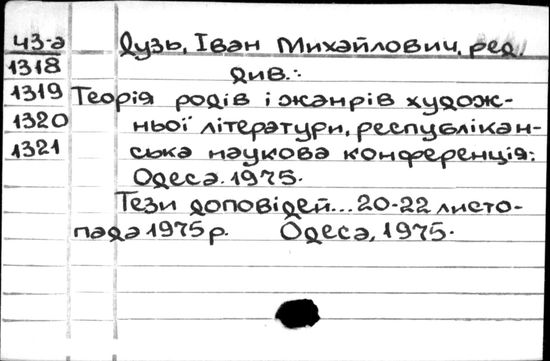 43-а Дузь, Іван Михайлович, ред.
1318 див.:
1319 Теорія родів і жанрів худож-
1320 ньої літератури, республікан-
1321 ська наукова конференція:
Одеса. 1975.
Тези доповідей... 20-22 листо-
пада 1975 р. Одеса, 1975.